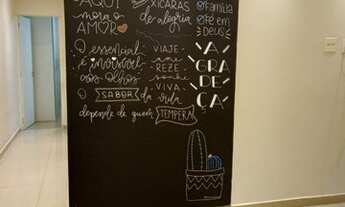 AQUI
mora o
AMOR
XÍCARAS
de alegria
Família
Fé em
DEUS
O essencial
é invisível
aos olhos
VIAJE
ame
REZE
sonhe
VIVA
A
GRA
DE
ÇA
O SABOR da vida
depende de quem TEMPERA